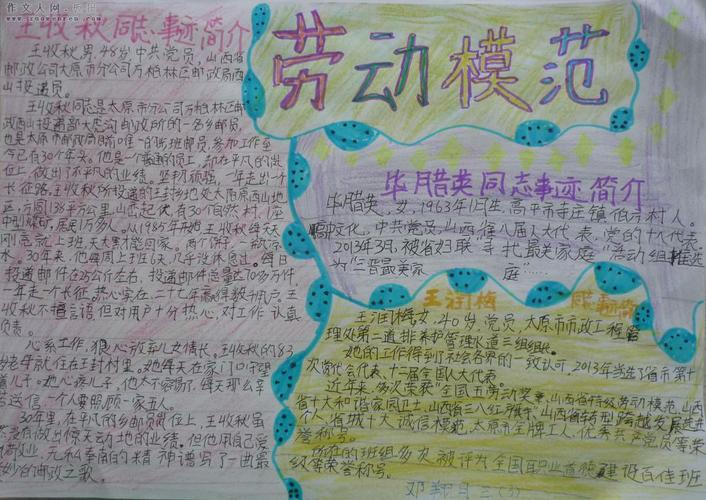 作文人网
王收秋同志事迹简介
王收秋,男,48岁,中共党员,山西省
邮政公司太原市分公司万柏林区邮政局西
山投递员。
王收秋同志是太原市分公司万柏林区邮
政西山投递部大虎峪邮政所的一名乡邮员,
也是太原市邮政局前唯一的班邮员,参加工作至
今已有30个年头。他是一个普通的员工,却在平凡的岗
位上,做出了不平凡的业绩。坚韧顽强,一年走出一个
长征路,王收秋所投递的王封乡地处太原西山地
区,方圆136平方公里,山峦起伏,有30个自然村,
中型煤矿,居民1万多人。从1985年开始,王收秋每天
刚亮就上班,天大黑才能回家。两个饼,一瓶凉
水,30年来,他每周上班6天,几乎没休息过。每日
投递邮件在3公斤左右,投递邮件总量达70多万件,
一年走一个长征。热心实在,二十七年赢得数千用户,王
收秋不擅言语,但对用户十分热心,对工作认真
负责。
心系工作,狠心放弃儿女情长。王收秋的83
岁老母就住在王封村里。她每天在家门口等望
着儿子。她心疼儿子,他太不容易了,每天那么辛
苦送信,一个人要照顾一家五人。
30年里,在平凡的乡邮员岗位上,王收秋虽
没有做出惊天动地的业绩,但他用自己爱
岗敬业,无私奉献的精神谱写了一曲最
美妙的邮政之歌。
劳动模范
毕腊英同志事迹简介
毕腊英,女,1963年1月生,高平市寺庄镇伯方村人。
高中文化,中共党员,山西省八届人大代表,党的十八代表。
2013年3月,被省妇联“寻找最美家庭”活动组推选
为“三晋最美家庭……
王润梅 同志事迹简介
王润梅,女,40岁,党员,太原市市政工程管
理处第二道排养护管理水道三组组长。
她的工作得到了社会各界的一致认可,2013年当选了省市第十
次党代会代表、十二届全国人大代表。
近年来,多次荣获“全国五一劳动奖章,山西省特级劳动模范,山西
省十大和谐家园卫士,山西省三八红旗手,山西省转型跨越发展先进
个人,省城十大诚信模范,太原市金牌工人,优秀共产党员等荣
誉称号。
所在的班组多次被评为全国职业道德建设百佳班
组等荣誉称号。
邓翔月 三(3)